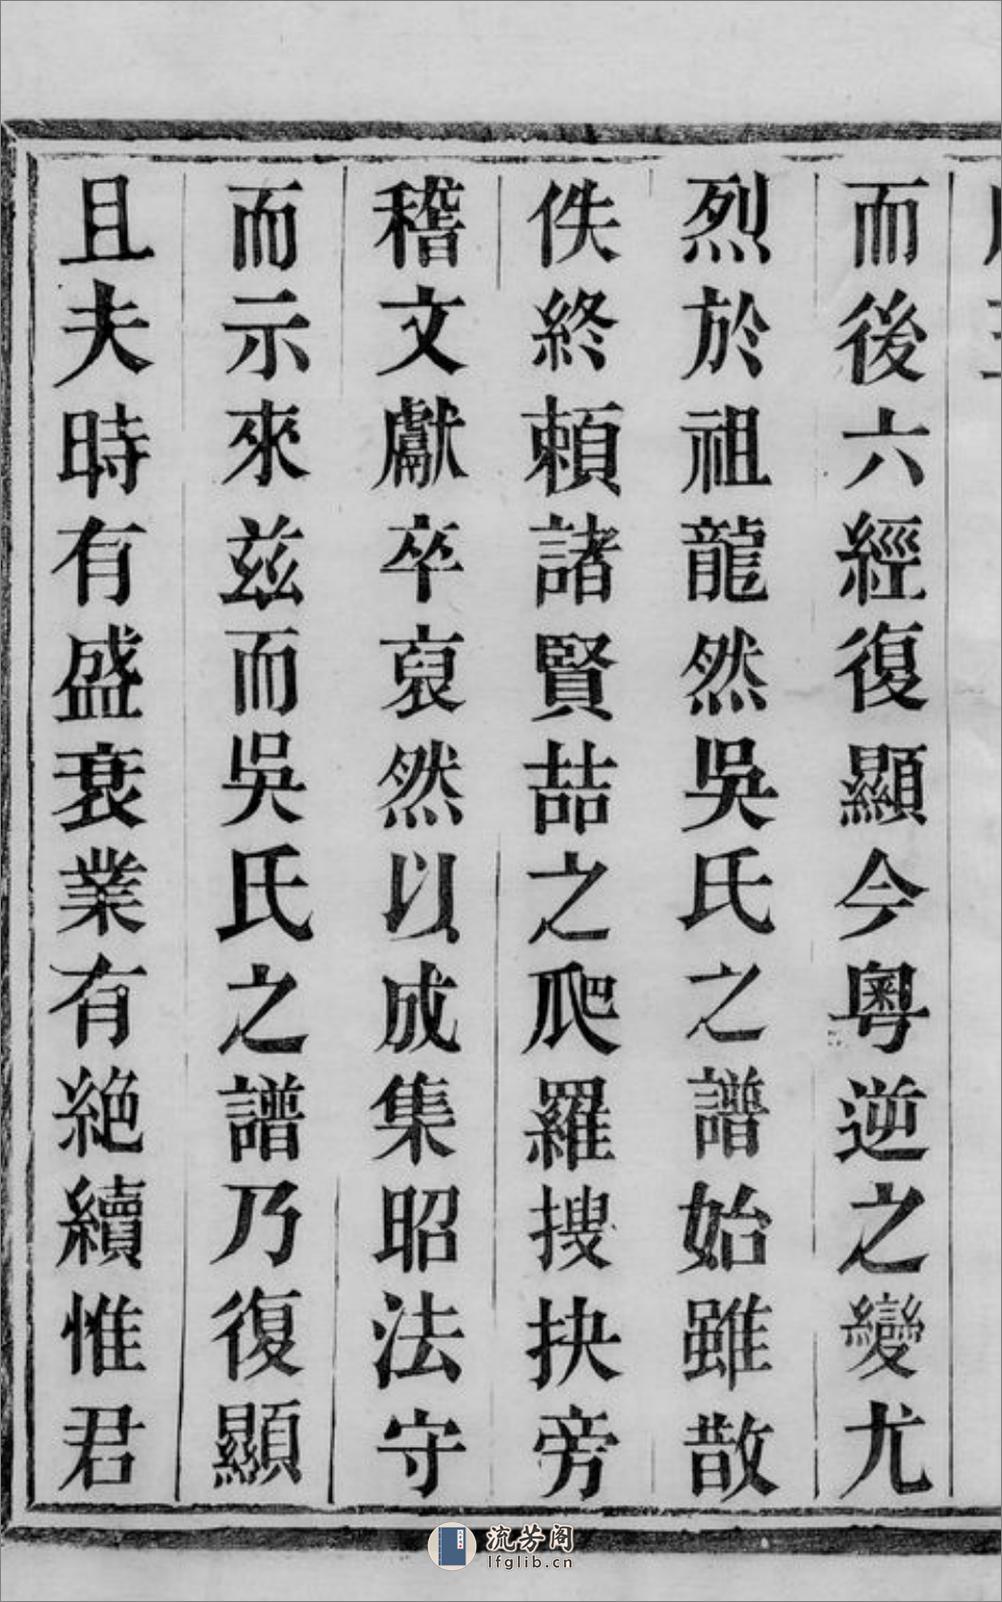 而後六經復顯今粵逆之變尤
烈於祖龍然吳氏之譜始雖散
佚終賴諸賢喆之爬羅搜抉旁
稽文獻卒裒然以成集昭法守
而示來茲而吳氏之譜乃復顯
且夫時有盛衰業有絕續惟君
流芳阁
lfglib.cn